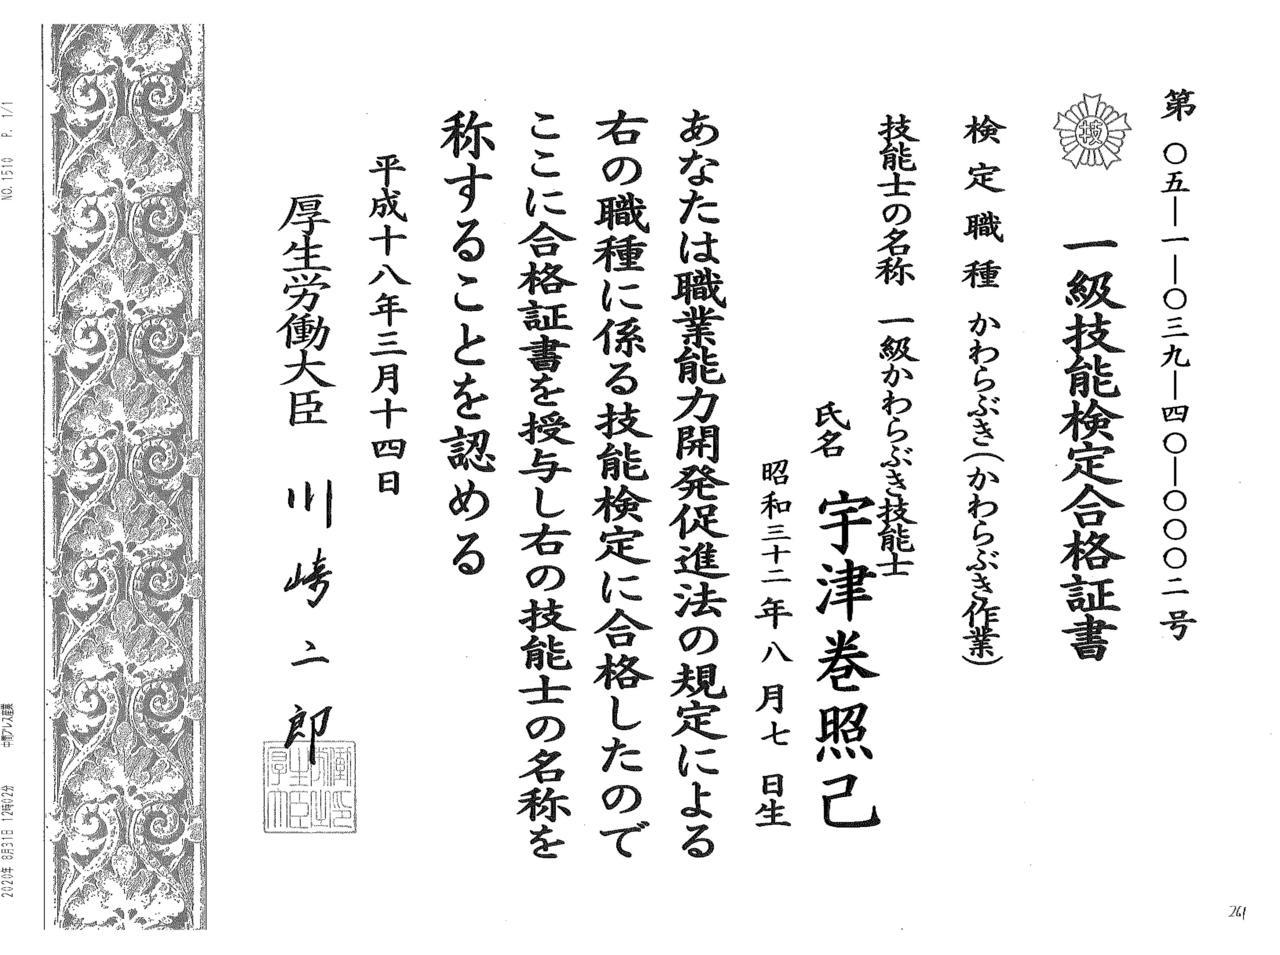 第〇五―一―〇三九―四〇―〇〇〇二号
技
一級技能検定合格証書
検定職種 かわらぶき(かわらぶき作業)
技能士の名称 一級かわらぶき技能士
氏名 宇津巻照己
昭和三十二年八月七日生
あなたは職業能力開発促進法の規定による
右の職種に係る技能検定に合格したので
ここに合格証書を授与し右の技能士の名称を
称することを認める
平成十八年三月十四日
厚生労働大臣 川崎二郎
2020年 8月31日 12時02分
NO. 1510 P. 1/1
261